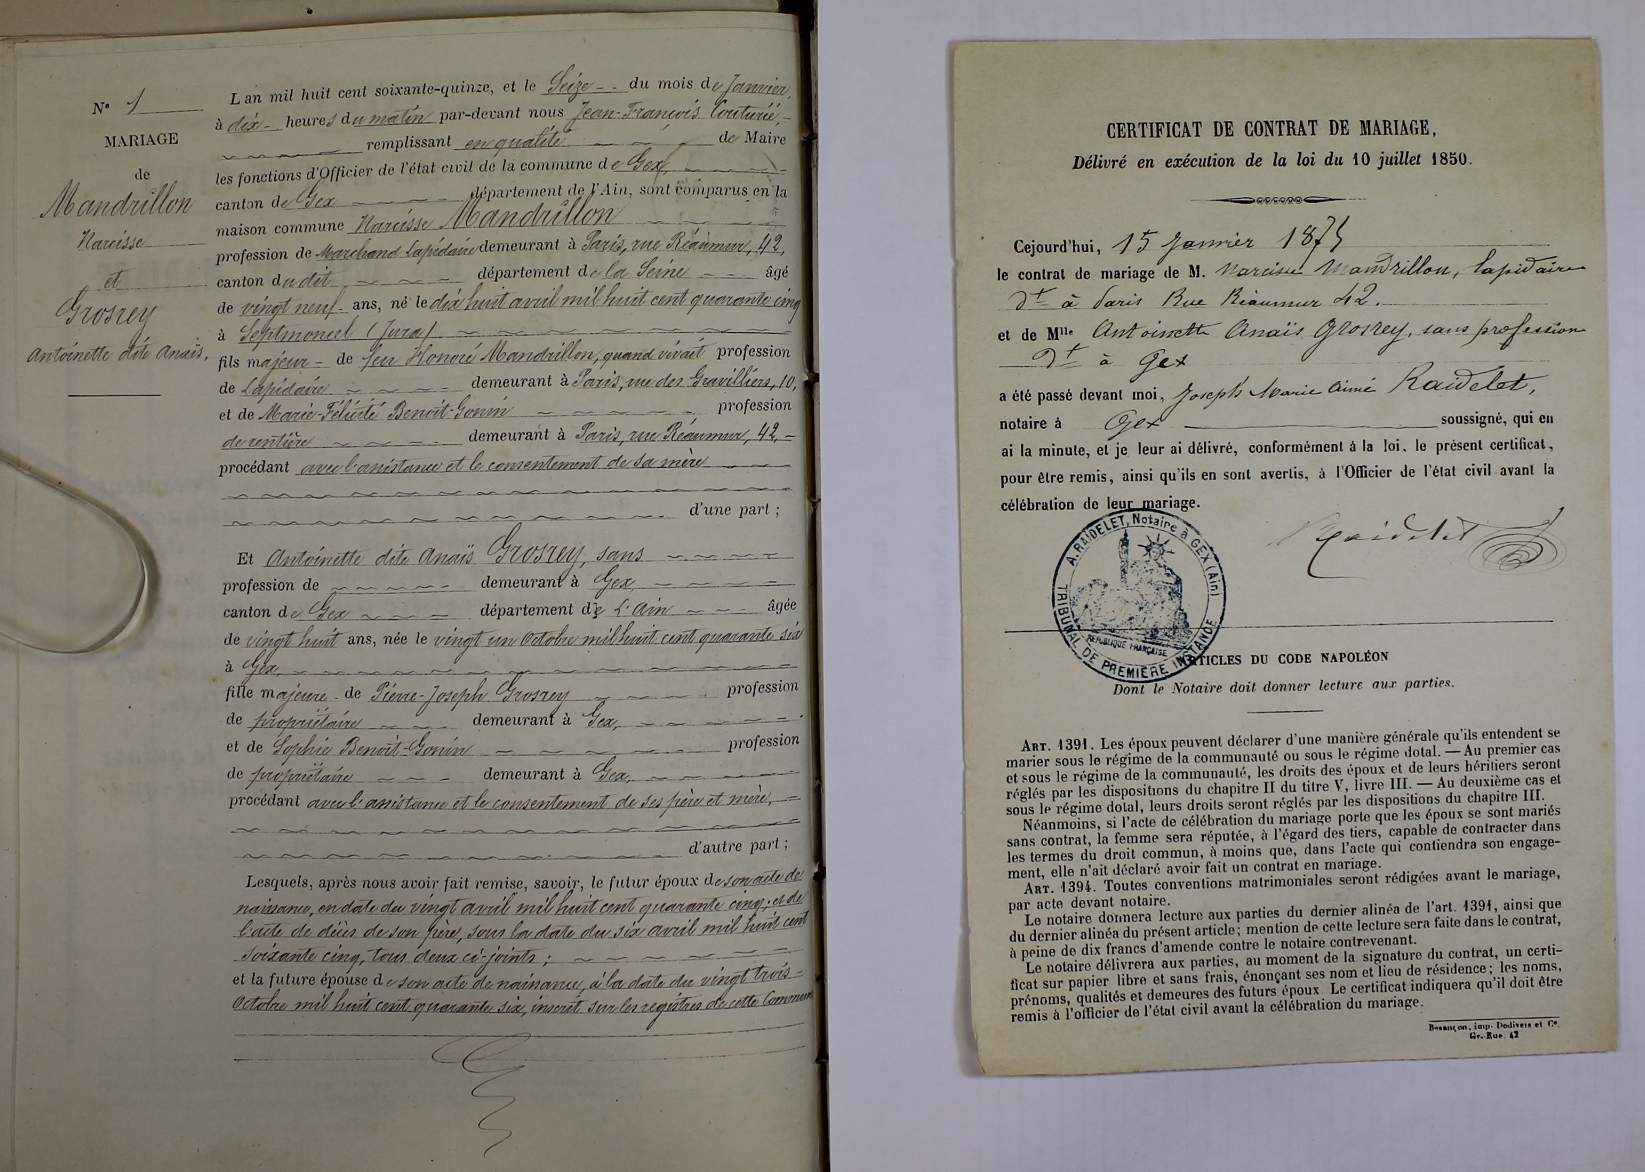 N° 1
MARIAGE
de
Mandrillon
Narcisse
et
Grosrey
Antoinette dite Anaïs.
L'an mil huit cent soixante-quinze, et le Seize du mois de Janvier,
à dix heures du matin par-devant nous Jean-François
remplissant en qualité de Maire
les fonctions d'Officier de l'état civil de la commune de Gex,
canton de Gex département de l'Ain, sont comparus en la
maison commune Narcisse Mandrillon
profession de Marchand Lapidaire demeurant à Paris, rue Réaumur, 42,
canton du dit département de la Seine âgé
de vingt neuf ans, né le dix huit avril mil huit cent quarante cinq
à Septmoncel (Jura)
fils majeur de feu Honoré Mandrillon, quand vivait profession
de Lapidaire demeurant à Paris, rue des Gravilliers, 10,
et de Marie-Félicité Benoit-Gonin profession
de rentière demeurant à Paris, rue Réaumur, 42,
procédant avec l'assistance et le consentement de sa mère
d'une part ;
Et Antoinette dite Anaïs Grosrey, sans
profession de demeurant à Gex,
canton de Gex département de L'Ain âgée
de vingt huit ans, née le vingt un Octobre mil huit cent quarante six
à Gex,
fille majeure de Pierre-Joseph Grosrey profession
de propriétaire demeurant à Gex,
et de Sophie Benoit-Gonin profession
de propriétaire demeurant à Gex,
procédant avec l'assistance et le consentement de ses père et mère,
d'autre part ;
Lesquels, après nous avoir fait remise, savoir, le futur époux de son acte de
naissance, en date du vingt avril mil huit cent quarante cinq ; et de
l'acte de décès de son père, sous la date du six avril mil huit cent
soixante cinq, tous deux ci-joints ;
et la future épouse de son acte de naissance, à la date du vingt trois
Octobre mil huit cent quarante six, inscrit sur les registres de cette Commune
CERTIFICAT DE CONTRAT DE MARIAGE,
Délivré en exécution de la loi du 10 juillet 1850.
Cejourd'hui, 15 Janvier 1875
le contrat de mariage de M. Narcisse Mandrillon, lapidaire
dt à Paris Rue Réaumur 42.
et de Mlle Antoinette Anaïs Grosrey, sans profession
dt à Gex
a été passé devant moi, Joseph Marie Aimé Raidelet,
notaire à Gex soussigné, qui en
ai la minute, et je leur ai délivré, conformément à la loi, le présent certificat,
pour être remis, ainsi qu'ils en sont avertis, à l'Officier de l'état civil avant la
célébration de leur mariage.
Raidelet
A. RAIDELET, Notaire à GEX (Ain)
TRIBUNAL DE PREMIÈRE INSTANCE
REPUBLIQUE FRANÇAISE
ARTICLES DU CODE NAPOLÉON
Dont le Notaire doit donner lecture aux parties.
ART. 1391. Les époux peuvent déclarer d'une manière générale qu'ils entendent se
marier sous le régime de la communauté ou sous le régime dotal. — Au premier cas
et sous le régime de la communauté, les droits des époux et de leurs héritiers seront
réglés par les dispositions du chapitre II du titre V, livre III. — Au deuxième cas et
sous le régime dotal, leurs droits seront réglés par les dispositions du chapitre III.
Néanmoins, si l'acte de célébration du mariage porte que les époux se sont mariés
sans contrat, la femme sera réputée, à l'égard des tiers, capable de contracter dans
les termes du droit commun, à moins que, dans l'acte qui contiendra son engage-
ment, elle n'ait déclaré avoir fait un contrat en mariage.
ART. 1394. Toutes conventions matrimoniales seront rédigées avant le mariage,
par acte devant notaire.
Le notaire donnera lecture aux parties du dernier alinéa de l'art. 1391, ainsi que
du dernier alinéa du présent article ; mention de cette lecture sera faite dans le contrat,
à peine de dix francs d'amende contre le notaire contrevenant.
Le notaire délivrera aux parties, au moment de la signature du contrat, un certi-
ficat sur papier libre et sans frais, énonçant ses nom et lieu de résidence ; les noms,
prénoms, qualités et demeures des futurs époux. Le certificat indiquera qu'il doit être
remis à l'officier de l'état civil avant la célébration du mariage.
Besançon, imp. Dodivers et Ce.
Gr.-Rue, 42